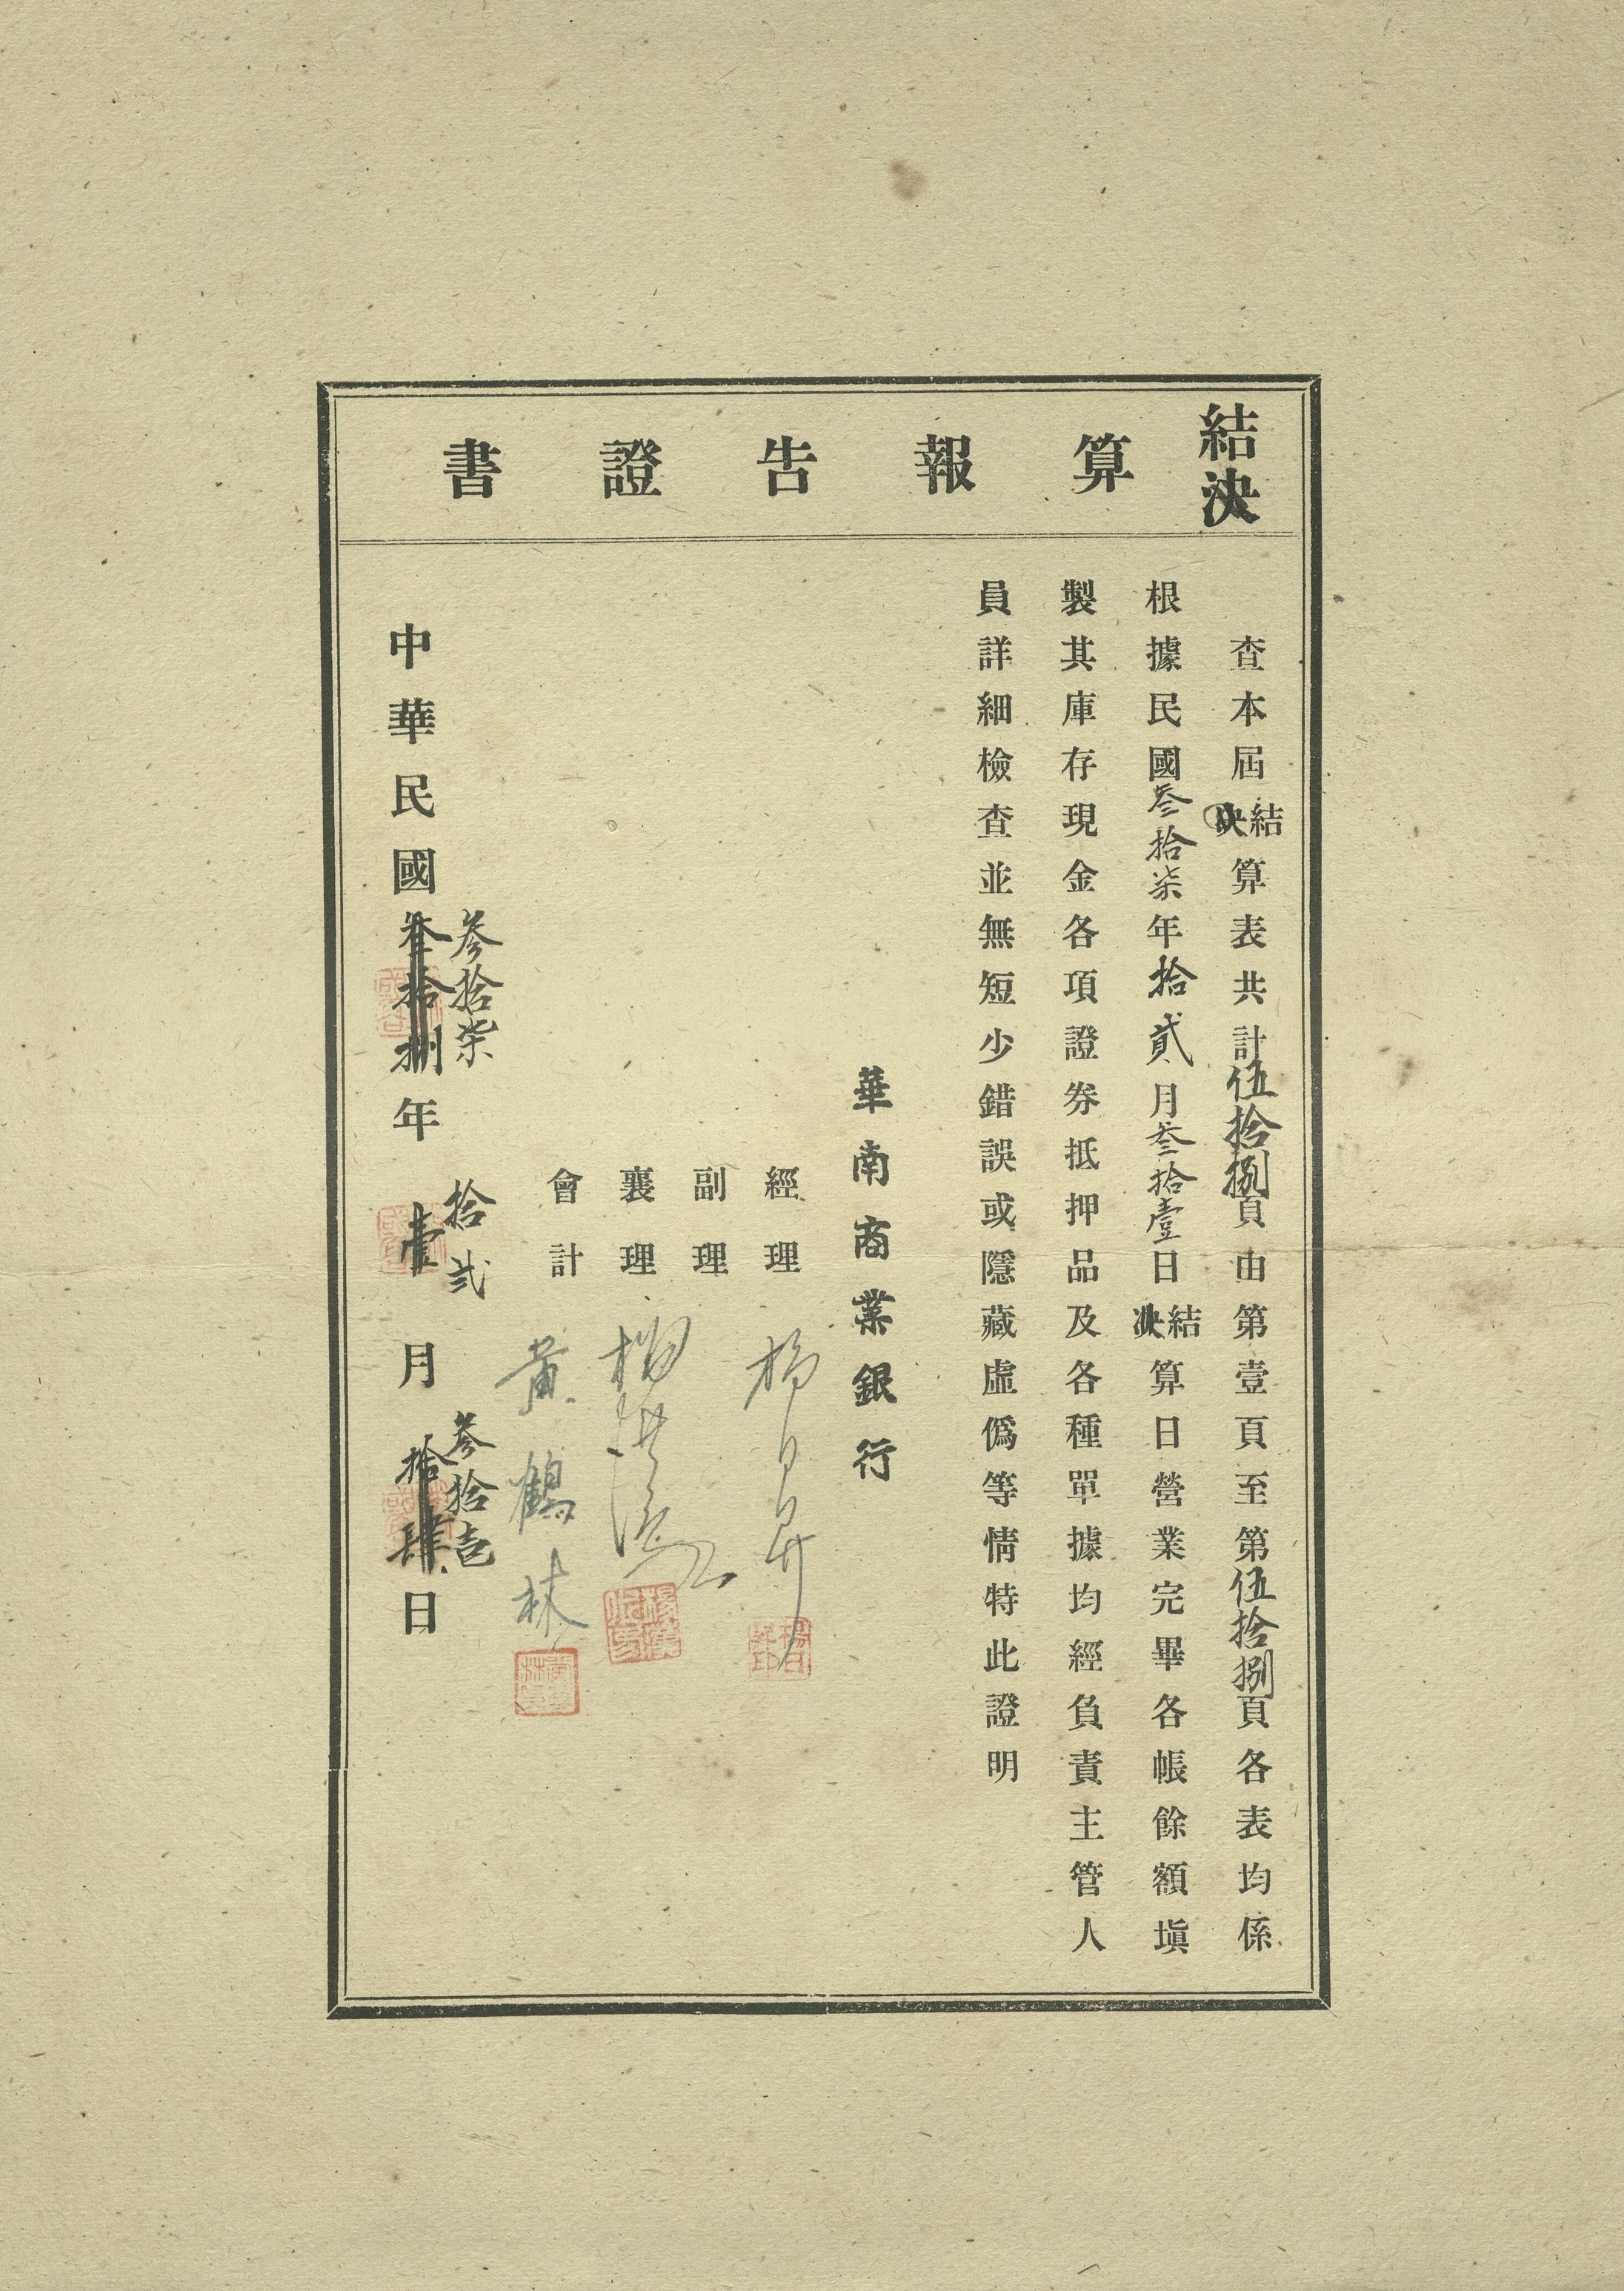 結決算報告證書
查本屆結決算表共計伍拾捌頁由第壹頁至第伍拾捌頁各表均係
根據民國叁拾柒年拾貳月叁拾壹日結決算日營業完畢各帳餘額塡
製其庫存現金各項證券抵押品及各種單據均經負責主管人
員詳細檢查並無短少錯誤或隱藏虛僞等情特此證明
華南商業銀行
經理 楊日昇
副理
襄理
會計 黃鶴林
參拾柒 拾弍 參拾壱
中華民國叁拾捌年壹月拾肆日